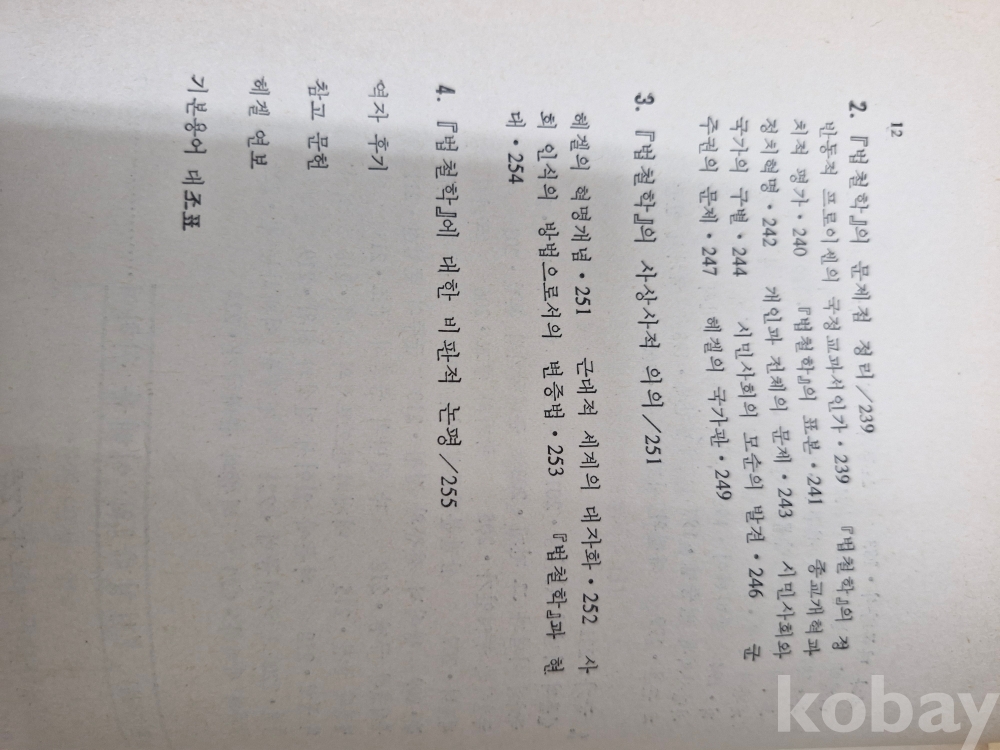 12
2. 『법철학』의 문제점 정리/239
반동적 프로이센의 국정교과서인가·239 『법철학』의 정
치적 평가·240 『법철학』의 표본·241 종교개혁과
정치혁명·242 개인과 전체의 문제·243 시민사회와
국가의 구별·244 시민사회의 모순의 발견·246 군
주권의 문제·247 헤겔의 국가관·249
3. 『법철학』의 사상사적 의의/251
헤겔의 혁명개념·251 근대적 세계의 대자화·252 사
회 인식의 방법으로서의 변증법·253 『법철학』과 현
대·254
4. 『법철학』에 대한 비판적 논평/255
역자 후기
참고 문헌
헤겔 연보
기본용어 대조표
kobay